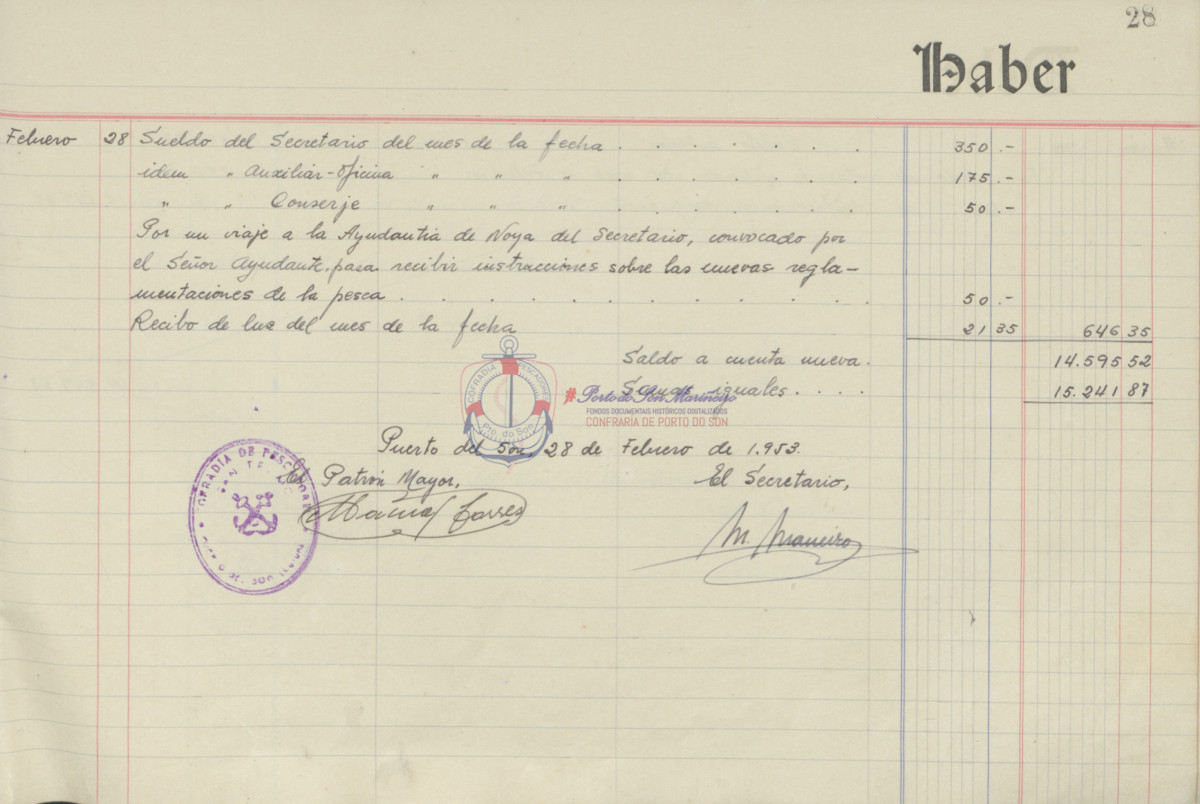 28
Haber
Febrero 28 Sueldo del Secretario del mes de la fecha . . . . . . . 350.-
idem " Auxiliar-Oficina " " " . . . . . . . 175.-
" " Conserje " " " . . . . . . . 50.-
Por un viaje a la Ayudantía de Noya del Secretario, convocado por
el Señor Ayudante, para recibir instrucciones sobre las nuevas regla-
mentaciones de la pesca . . . . . . . . . . . 50.-
Recibo de luz del mes de la fecha 21 35 646 35
Saldo a cuenta nueva. 14.595 52
Sumas iguales . . . . 15.241 87
COFRADIA PESCADORES
Pto. do Son
#Porto do Son Marineiro
FONDOS DOCUMENTAIS HISTÓRICOS DIXITALIZADOS
CONFRARÍA DE PORTO DO SON
Puerto del Son, 28 de Febrero de 1.953.
El Patrón Mayor, El Secretario,
COFRADIA DE PESCADORES
SAN TELMO
DEL SON